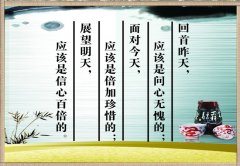 回首昨天，
应该是问心无愧的；
面对今天，
应该是倍加珍惜的；
展望明天，
应该是信心百倍的。